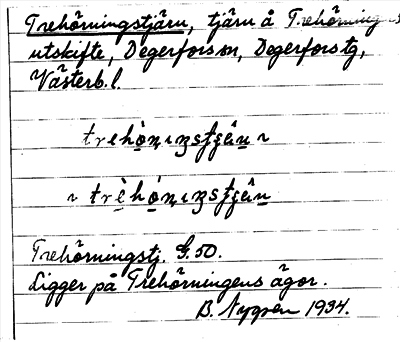 Trehörningstjärn, tjärn å Trehörnings
utskifte, Degerfors sn, Degerfors tg,
Västerb. l.
Trehörningstj. G. 50.
Ligger på Trehörningens ägor.
B. Nygren 1934.